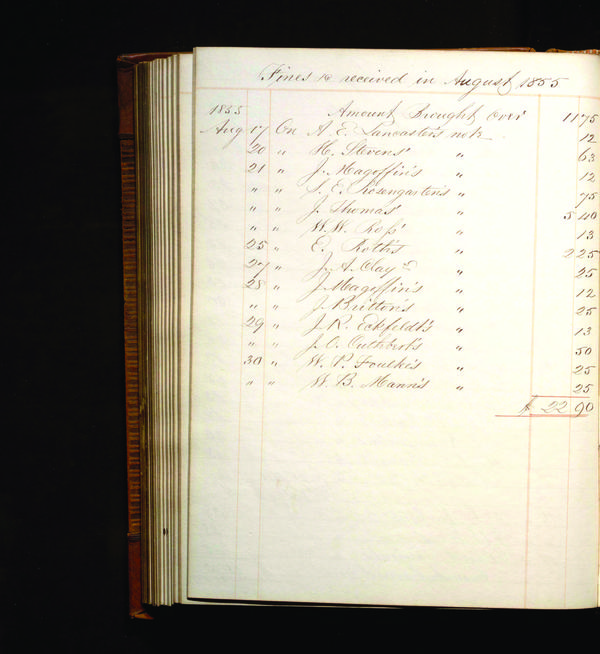 Fines &c received in August 1855
1855 Amount Brought Over 11 75
Aug 17 On A. E. Lancaster's note 12
20 " H. Stevens' " 63
21 " J. Magoffin's " 12
" " S. E. Rosengarten's " 75
" " J. Thomas' " 5 40
" " W. W. Ross' " 13
25 " E. Roth's " 2 25
27 " J. A. Clay " 25
28 " J. Magoffin's " 12
" " J. Britton's " 25
29 " J. R. Eckfeldt's " 13
" " J. O. Cuthbert's " 50
30 " W. P. Foulke's " 25
" " W. B. Mann's " 25
$ 22 90